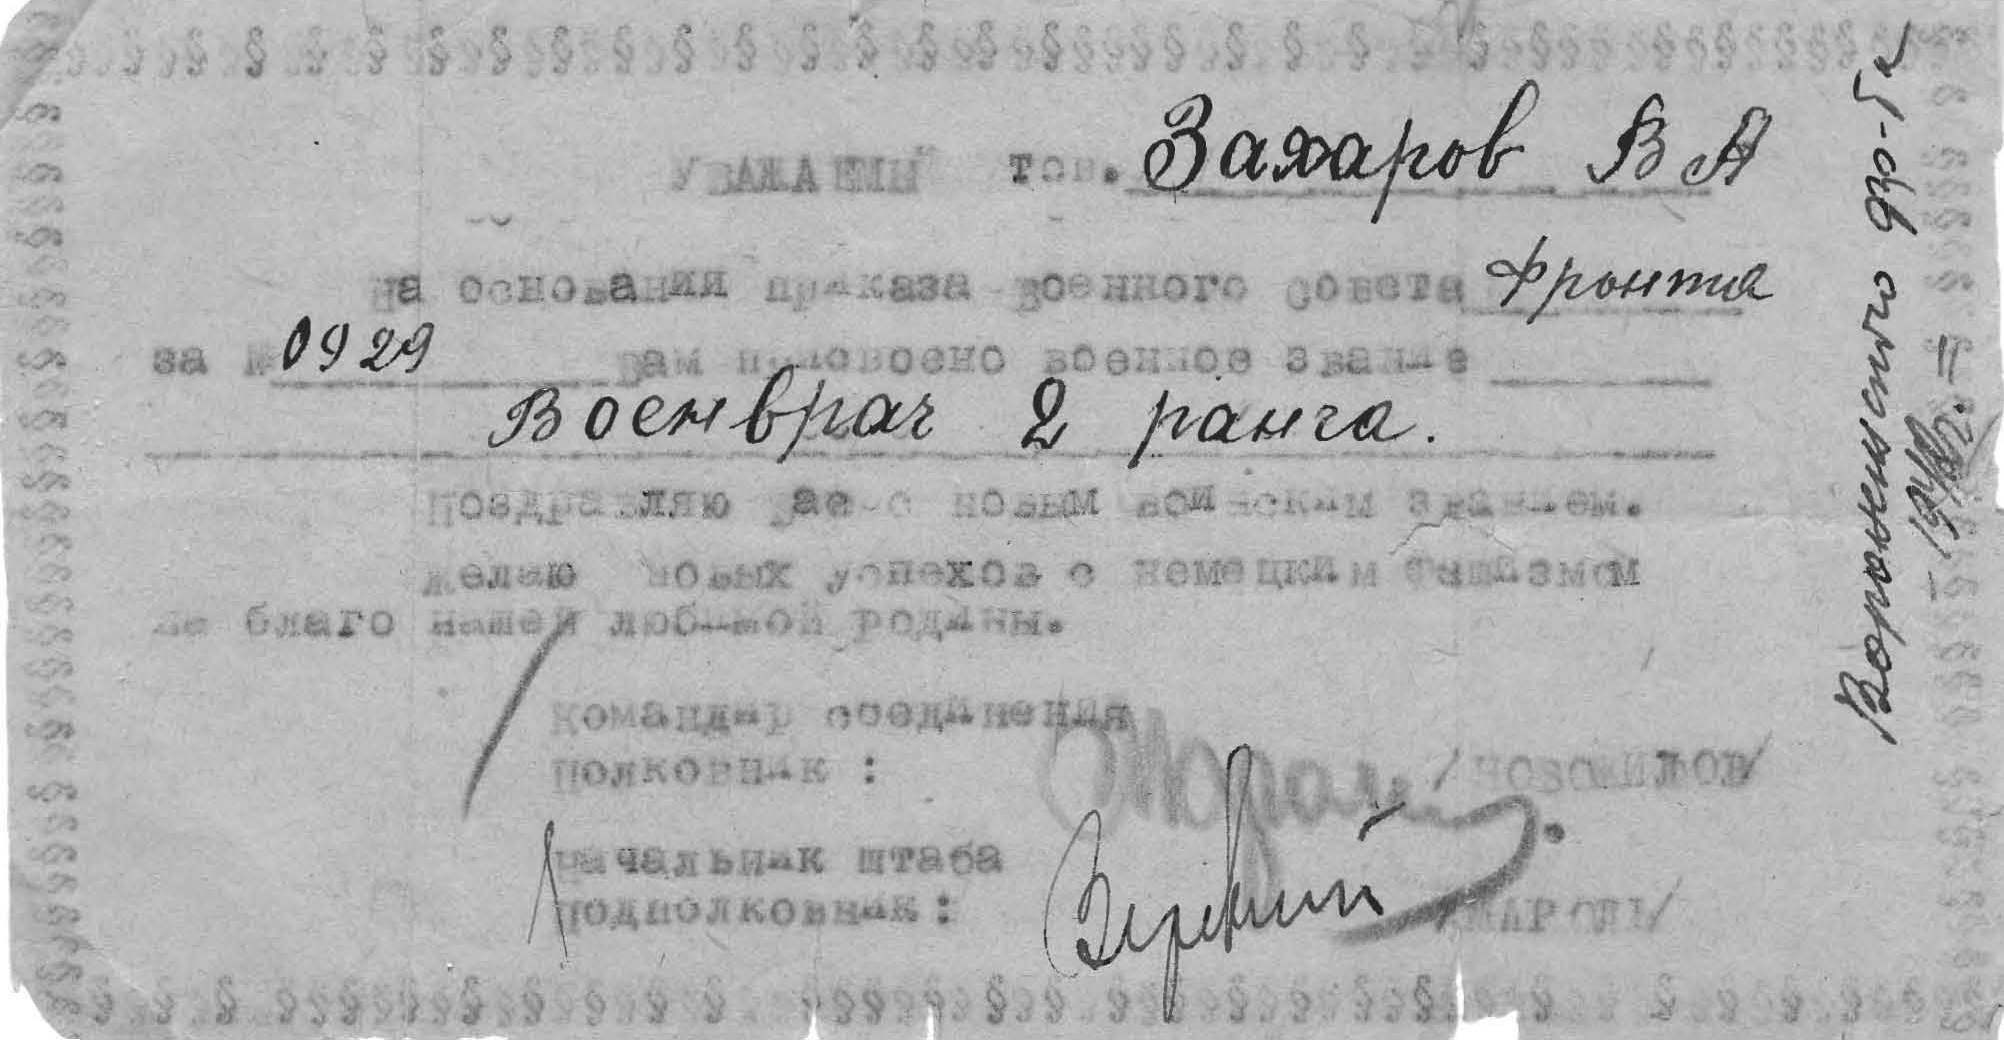 УВАЖАЕМЫЙ тов. Захаров В А
На основании приказа военного совета фронта
за № 0929 вам присвоено военное звание
Военврач 2 ранга.
Поздравляю вас с новым воинским званием.
желаю новых успехов с немецким фашизмом
на благо нашей любимой родины.
Командир соединения
полковник: /НОВОЖИЛОВ/
Начальник штаба
подполковник:
Воронежского фр-та